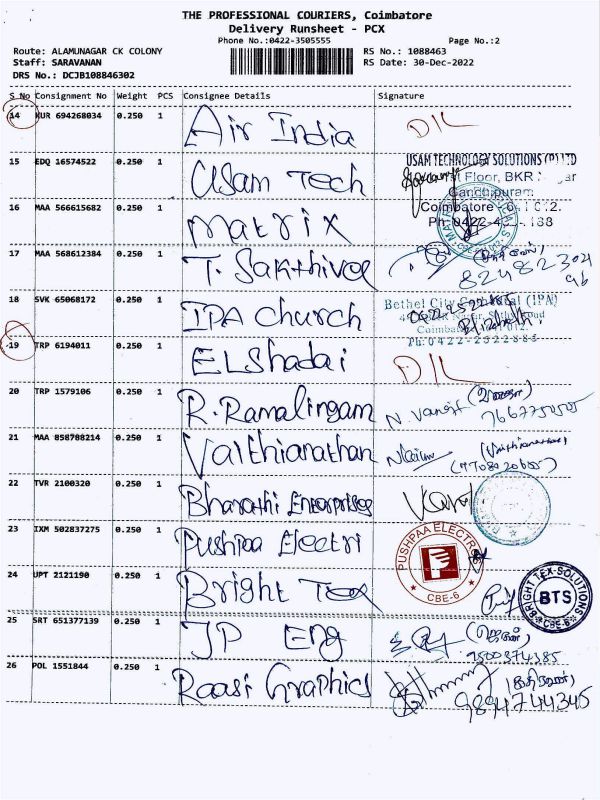 THE PROFESSIONAL COURIERS, Coimbatore
Delivery Runsheet - PCX
Phone No.:0422-3505555 Page No.:2
Route: ALAMUNAGAR CK COLONY RS No.: 1088463
Staff: SARAVANAN RS Date: 30-Dec-2022
DRS No.: DCJB108846302
S No Consignment No Weight PCS Consignee Details Signature
14 KUR 694268034 0.250 1 Air India DIL
15 EDQ 16574522 0.250 1 Usam Tech USAM TECHNOLOGY SOLUTIONS (P) LTD
Floor, BKR
Gandhipuram
Coimbatore
16 MAA 566615682 0.250 1 Matrix
17 MAA 568612384 0.250 1 T. Sakthivel
18 SVK 65068172 0.250 1 IPA Church Bethel City (IPA)
Road
Coimbatore
Ph: 0422-2522885
19 TRP 6194011 0.250 1 ELShadai DIL
20 TRP 1579106 0.250 1 R. Ramalingam
21 MAA 858708214 0.250 1 Vaithianathan
22 TVR 2100320 0.250 1 Bharathi Enterprises
23 IXM 502837275 0.250 1 Pushpaa Electri PUSHPAA ELECTRO
CBE-6
24 UPT 2121190 0.250 1 Bright Tex BRIGHT TEX-SOLUTIONS
BTS
CBE-6
25 SRT 651377139 0.250 1 JP Eng 9500374385
26 POL 1551844 0.250 1 Raasi Graphics 9894744345